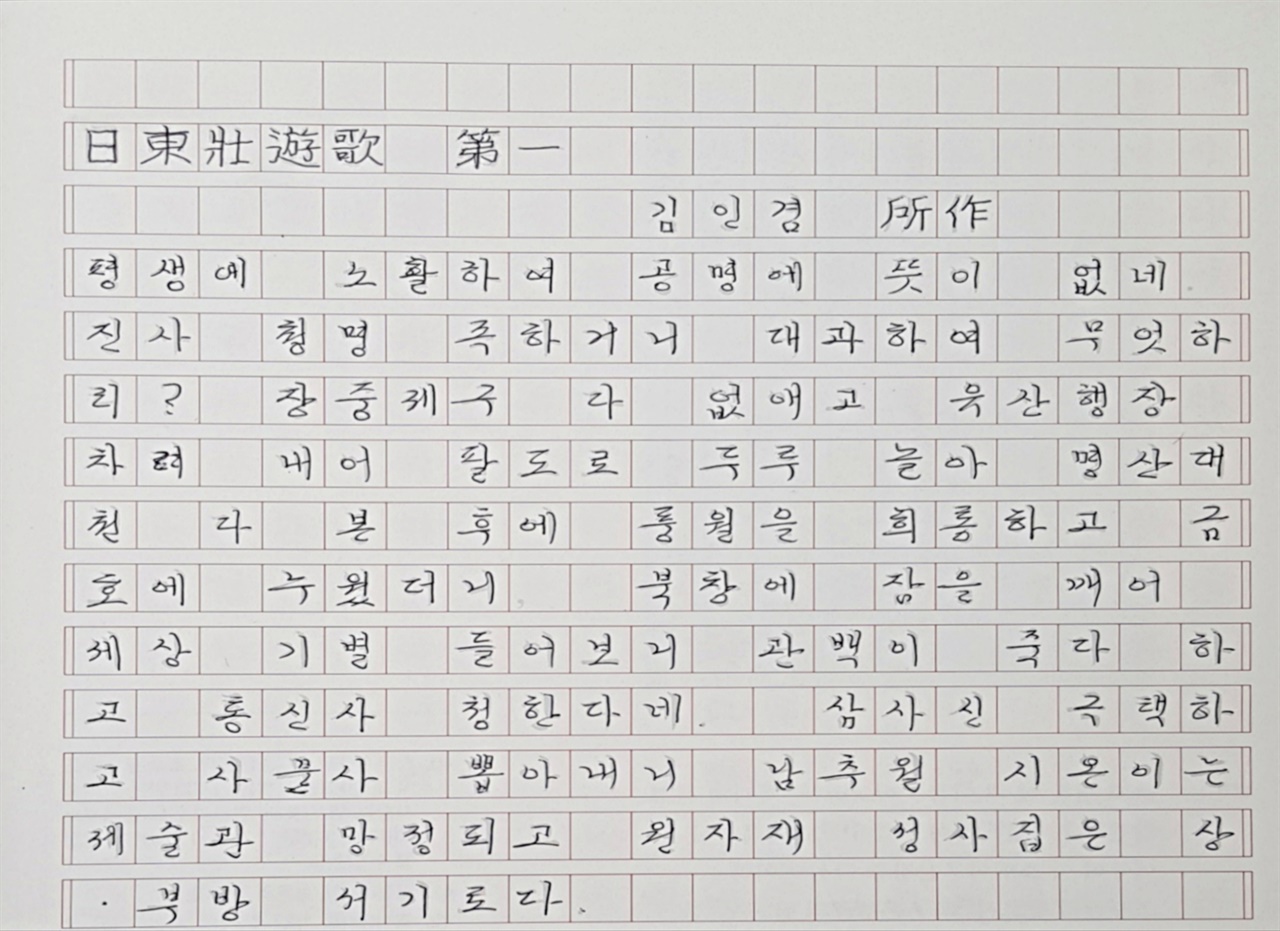 日東壯遊歌 第一
김인겸 所作
평생에 노활하여 공명에 뜻이 없네.
진사 청명 족하거니 대과하여 무엇하
리? 장중제구 다 없애고 육산행장
차려 내어 팔도로 두루 놀아 명산대
천 다 본 후에 풍월을 희롱하고 금
호에 누웠더니 북창에 잠을 깨어
세상 기별 들어보니 관백이 죽다 하
고 통신사 청한다네. 삼사신 극택하
고 사문사 뽑아내니 남추월 시온이는
제술관 망정되고 원자재 성사집은 상
·부방 서기로다.